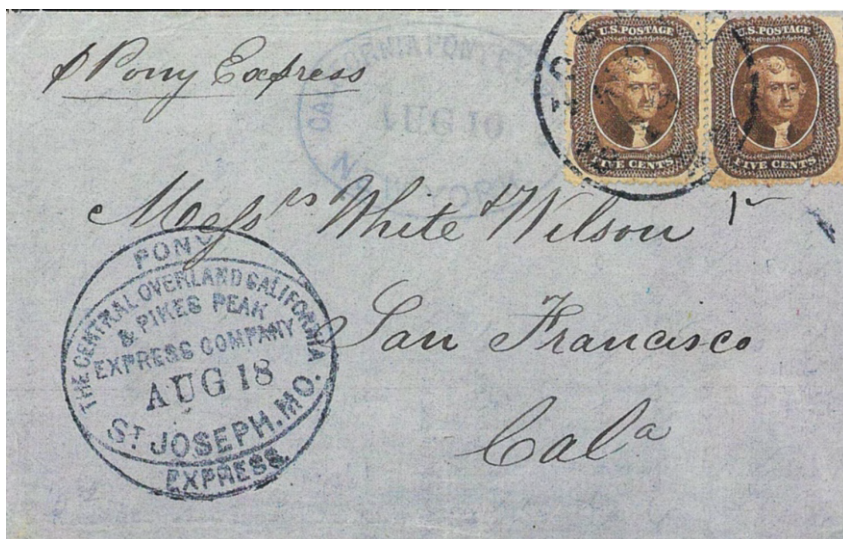 p Pony Express
CALIFORNIA PONY
AUG 10
NEW YORK
U.S. POSTAGE
FIVE CENTS
U.S. POSTAGE
FIVE CENTS
Messrs White & Wilson
San Francisco
Cala
PONY
THE CENTRAL OVERLAND CALIFORNIA
& PIKES PEAK
EXPRESS COMPANY
AUG 18
ST JOSEPH, MO.
EXPRESS